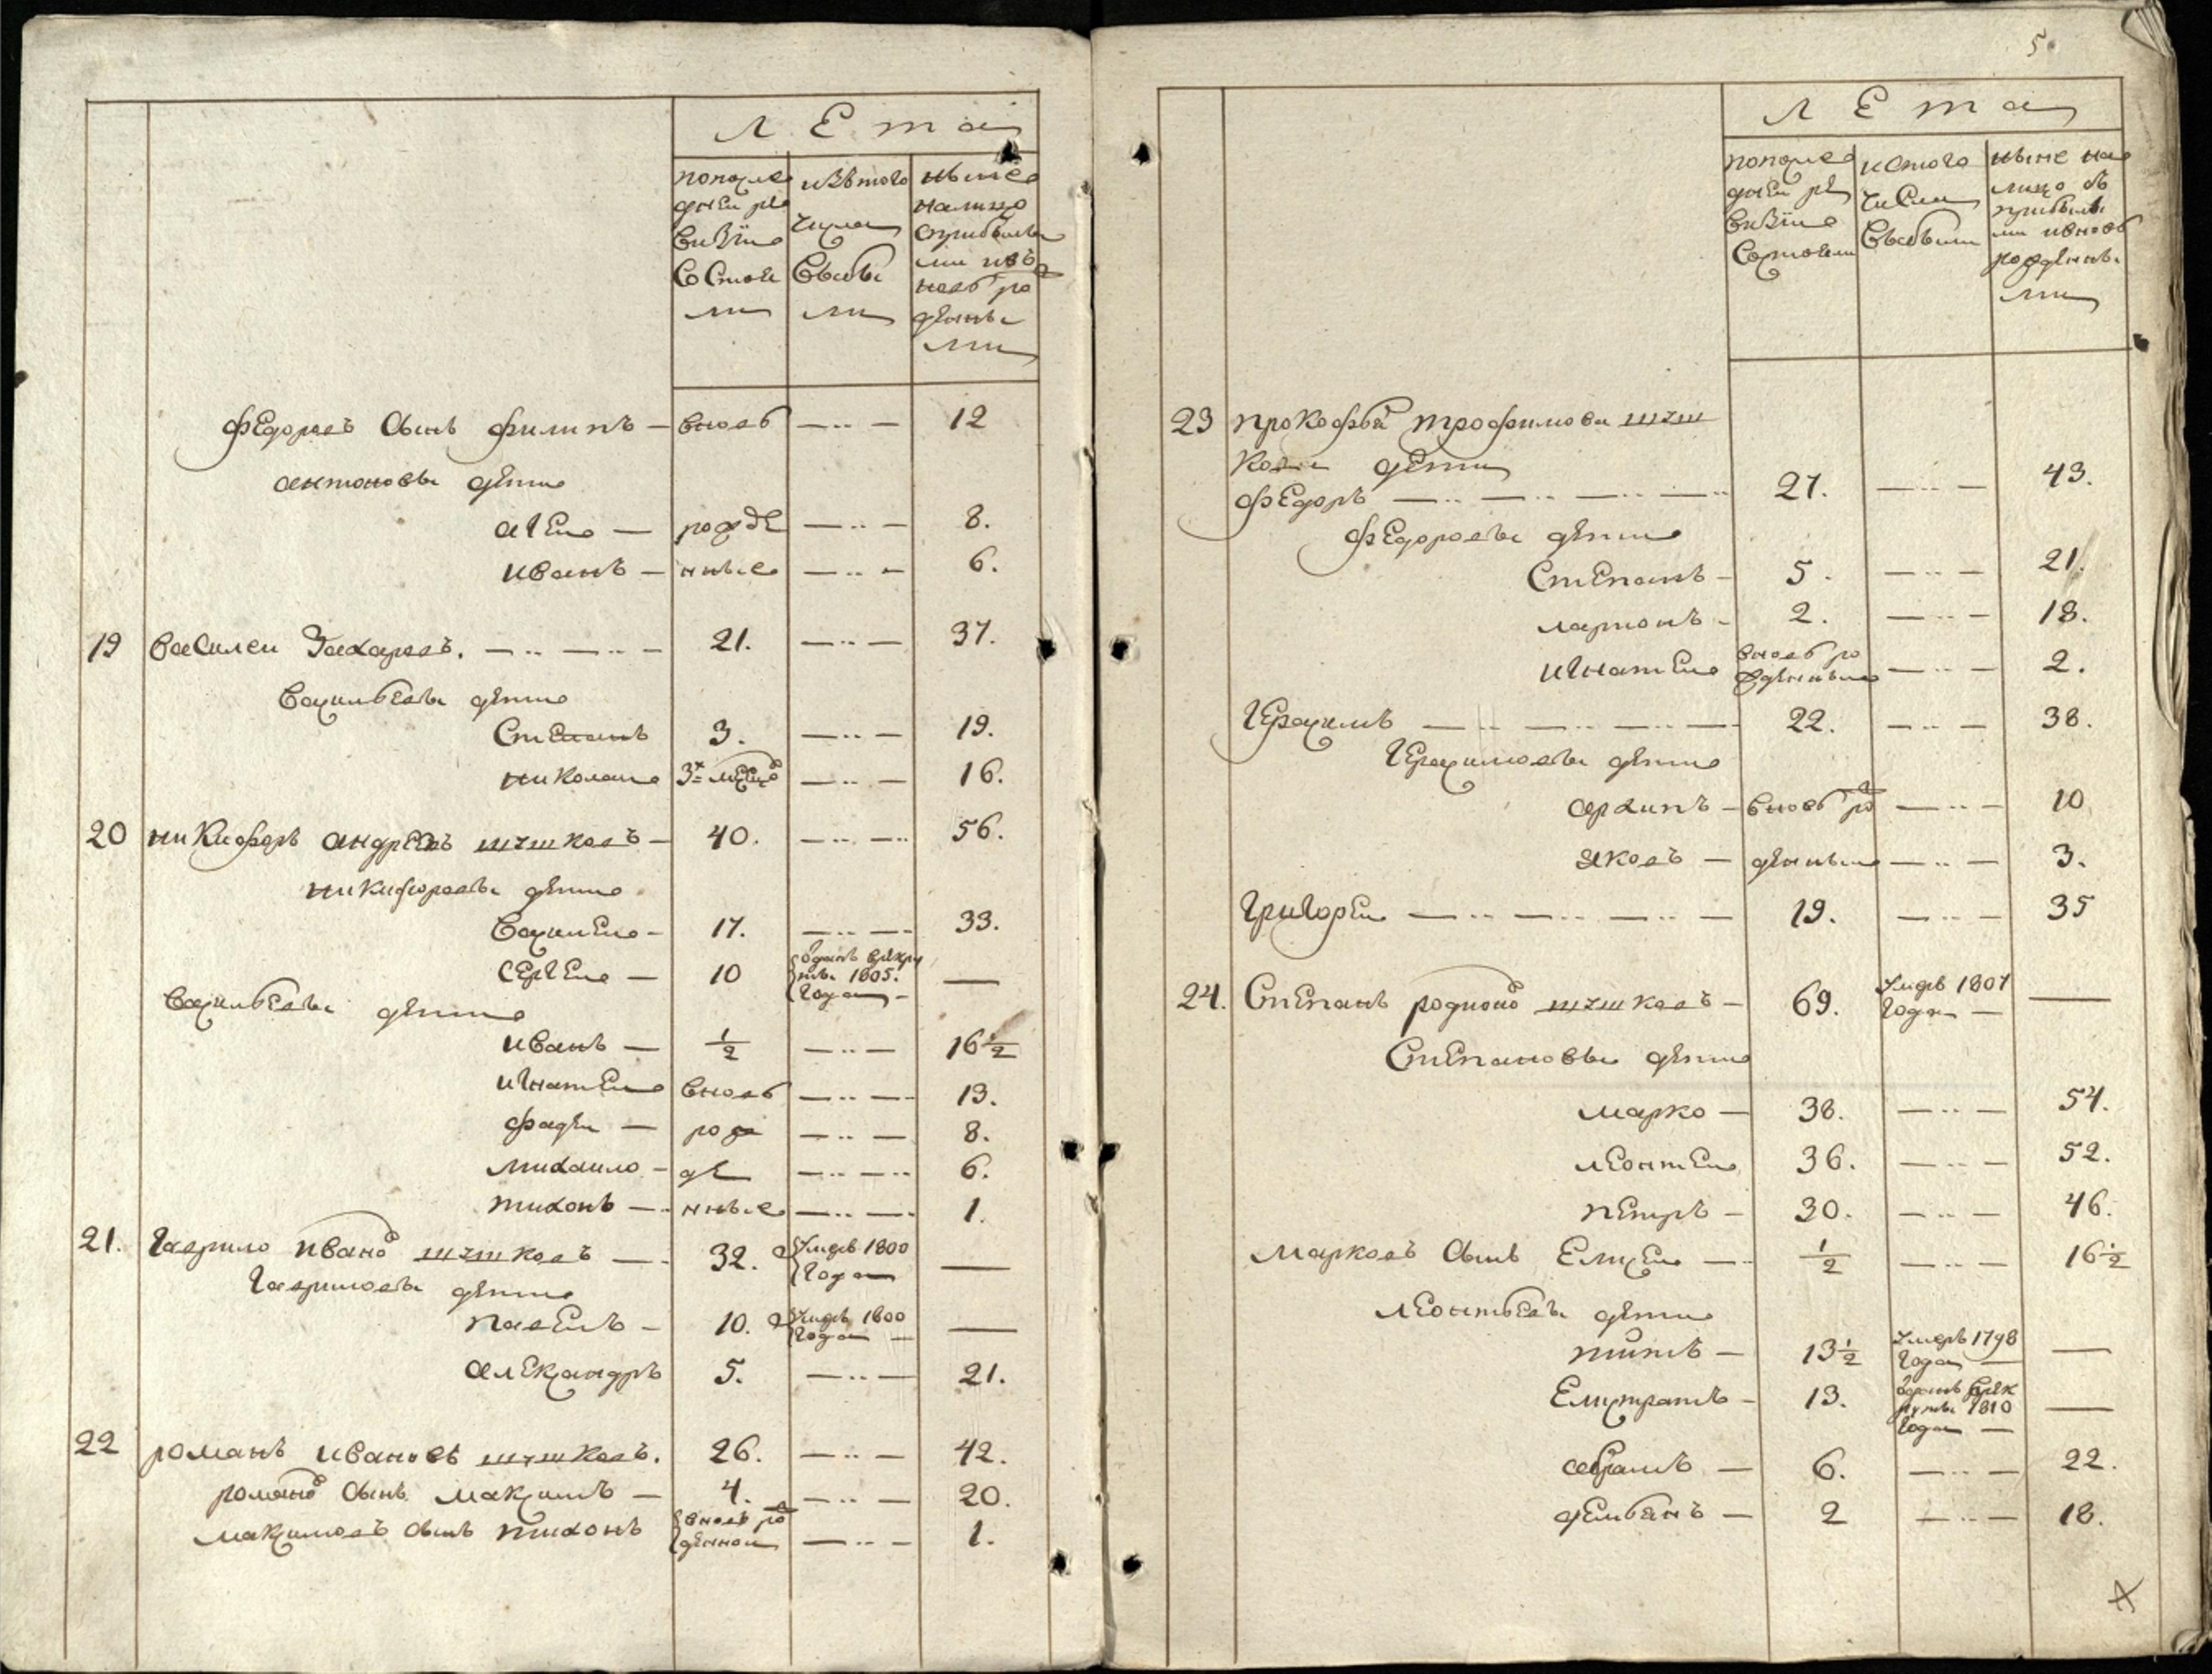 Л Е т а
попосле изътого ныне
дней ре числа налицо
визiи сприбылы
состоя выбы ми ивъ
ли ли новь ро
жденны
ми
Федоровъ сынъ Филипъ — вновь — ·· — 12
Антоновы дети
Агей — рожде — ·· — 8.
Иванъ — нные — ·· — 6.
19 Василеи Захаровъ. — ·· — ·· — 21. — ·· — 37.
Васильевы дети
Степанъ 3. — ·· — 19.
Николаи 3х месяцо — ·· — 16.
20 Никифоръ Андреевъ Шишковъ — 40. — ·· — 56.
Никифоровы дети
Василеи — 17. — ·· — 33.
Сергеи — 10 отданъ врекру
ты 1805.
года — —
Васильевы дети
Иванъ — ½ — ·· — 16 ½
Игнатеи вновь — ·· — 13.
Фадеи — рож — ·· — 8.
Михаило — де — ·· — 6.
Тихонъ — нные — ·· — 1.
21. Гаврило Ивано Шишковъ — 32. умеръ 1800
года —
Гавриловы дети
Павелъ — 10. умеръ 1800
года — —
Александръ 5. — ·· — 21.
22 Романъ Ивановъ Шишковъ. 26. — ·· — 42.
Романо сынъ Максимъ — 4. — ·· — 20.
Максимовъ сынъ Тихонъ вновь ро
жденнои — ·· — 1.
5
Л Е т а
попосле истого ныне на
дней ре числа лицо съ
визiи выбыли прибылы
состояли ми ивновь
рожденны
ми
23 Прокофья Трофимова Шиш
кова дети
Федоръ — ·· — ·· — ·· — 27. — ·· — 43.
Федоровы дети
Степанъ — 5. — ·· — 21.
Ларионъ — 2. — ·· — 18.
Игнатеи вновь ро
жденныи — ·· — 2.
Герасимъ — ·· — ·· — 22. — ·· — 38.
Герасимовы дети
Архипъ — вновь ро — ·· — 10
Яковъ — жденные — ·· — 3.
Григореи — ·· — ·· — ·· — 19. — ·· — 35
24. Степанъ Родионо Шишковъ — 69. умръ 1807
года — —
Степановы дети
Марко — 38. — ·· — 54.
Леонтеи 36. — ·· — 52.
Петръ — 30. — ·· — 46.
Марковъ сынъ Елисеи — ½ — ·· — 16 ½
Леонтьевы дети
Титъ — 13 ½ умеръ 1798
года — —
Елистратъ — 13. отданъ врек
руты 1810
года — —
Абрамъ — 6. — ·· — 22.
Демьянъ — 2 — ·· — 18.